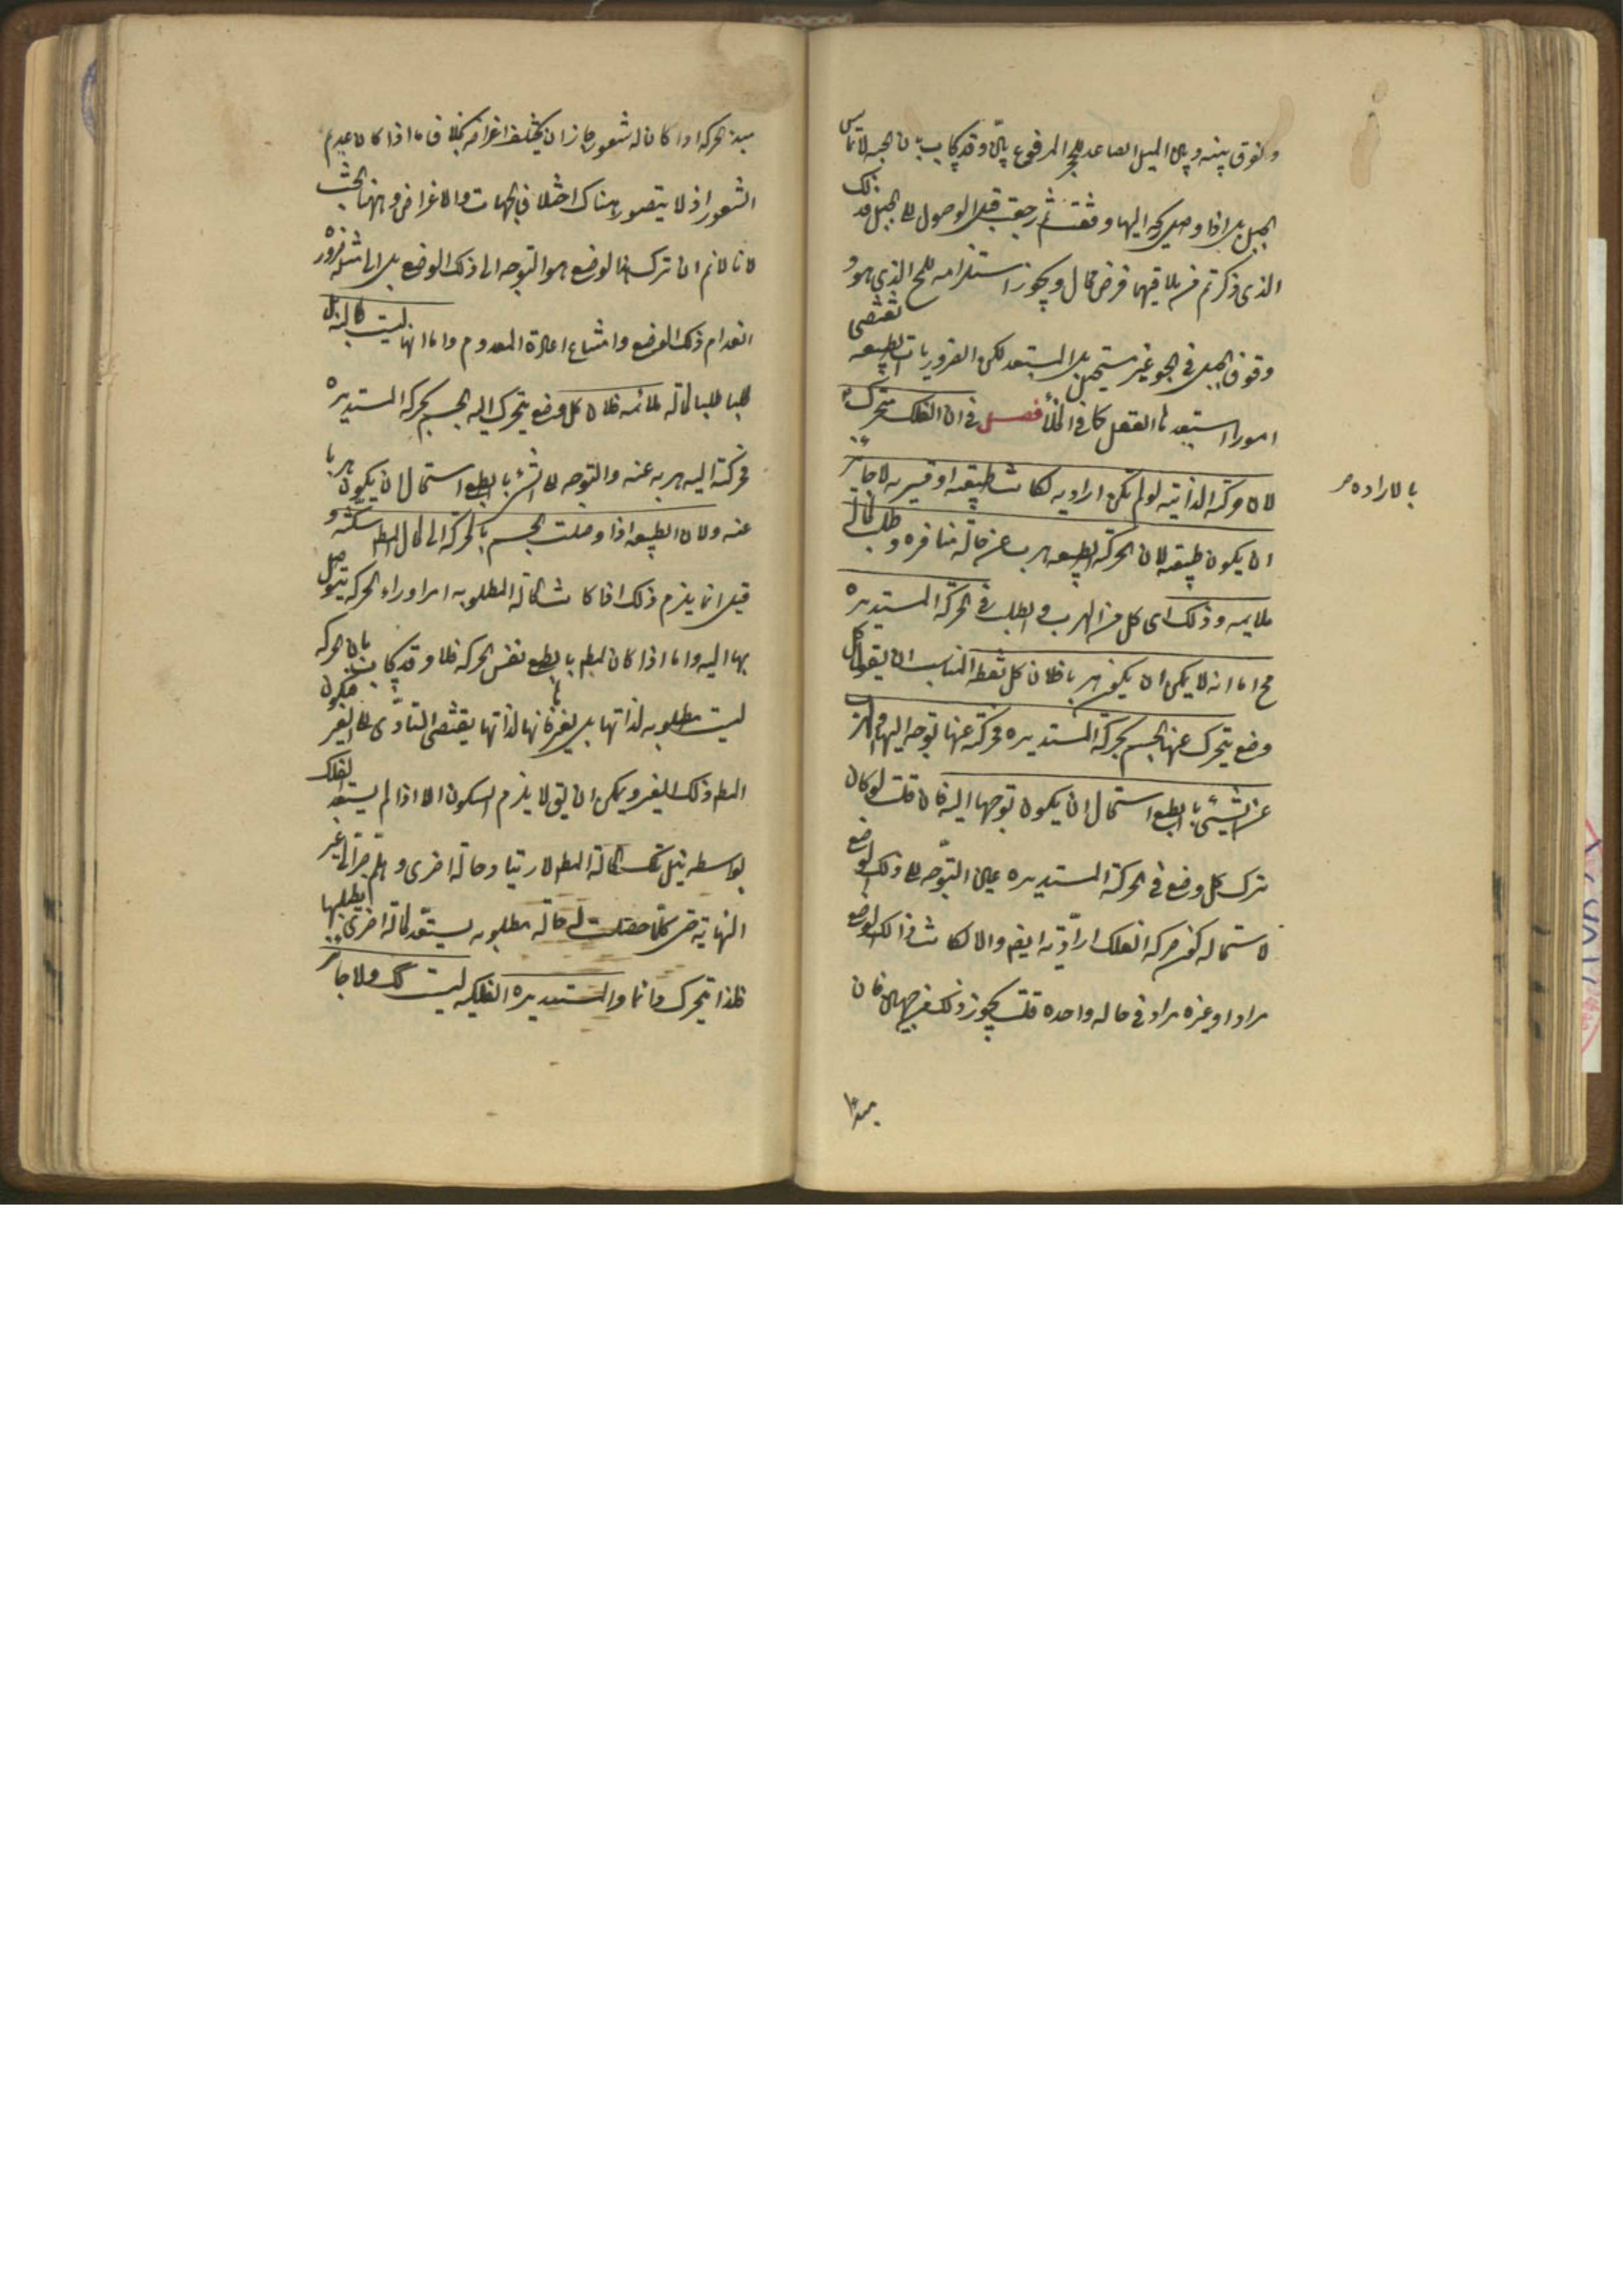 والفرق بينه وبين الميل الصاعد للحجر المرفوع بيّن وقد يجاب بان الحبة لا تماس
الجبل بل اذا وصل ريحه اليها وقفت ثم رجعت قبل الوصول الى الجبل وذلك
الذى ذكرتم من تلاقيهما فرض محال ويجوز استلزامه للمح الذى هو
وقوف الجبل فى الجو غير مستحيل بل مستبعد لكن الضروريات الطبيعه تقتضى
امورا استبعدها العقل كما فى الخلأ فصل فى ان الفلك متحرك
بالاراده
لان حركته الذاتيه لو لم تكن اراديه لكانت طبيعيه او قسريه لا جايز
ان يكون طبيعيه لان الحركة الطبيعيه هرب عن حالة منافره وطلب لحالة
ملايمه وذلك اى كل من الهرب والطلب فى الحركة المستديره
مح اما انه لا يمكن ان يكون هربا فلان كل نقطه المناسب ان يقول كل
وضع يتحرك عنها الجسم بحركة المستديره فحركته عنها توجه اليها والهرب
عن الشئ بالطبع استحال ان يكون توجها اليه فان قلت لو كان
ترك كل وضع فى الحركة المستديره عين التوجه الى ذلك الوضع
لاستحال كون حركه الفلك اراديّه ايضا والا لكانت ذلك الوضع
مرادا وغير مراد فى حاله واحده قلت يجوز ذلك من جهتين فان
مبدا
مبدء الحركه اذا كان له شعور جاز ان يختلف اغراضه بخلاف ما اذا كان عديم
الشعور اذ لا يتصور هناك اختلاف الجهات والاغراض وههنا بحث
لانا لانم ان ترك الوضع هو التوجه الى ذلك الوضع بل الى مثله ضروره
انعدام ذلك الوضع وامتناع اعادة المعدوم واما انها ليست طالبه
طلبا لحالة ملائمه فلان كل وضع يتحرك اليه الجسم بحركه المستديره
فحركته اليه هربه عنه والتوجه الى الشئ بالطبع استحال ان يكون هربا
عنه ولان الطبيعه اذا وصلت الجسم بالحركه الى الحال المط سكنته و
قيل انما يلزم ذلك اذا كانت الحالة المطلوبه امرا وراء الحركه يتوصل
بها اليه واما اذا كان المط بالطبع نفس الحركه فلا وقد يجاب بان الحركه
ليست مطلوبه لذاتها بل لغيرها فانها لذاتها يقتضى التادّى الى الغير فيكون
المط ذلك الغير ويمكن ان يق لا يلزم السكون الا اذا لم يستعد الفلك
بواسطه نيل تلك الحالة المطلوبه حالة اخرى وهلم جرا الى غير
النهايه حتى كلما حصلت له حاله مطلوبه يستعد لحالة اخرى يطلبها
فلذا يتحرك دائما والمستديره الفلكيه ليست كك ولا جايز